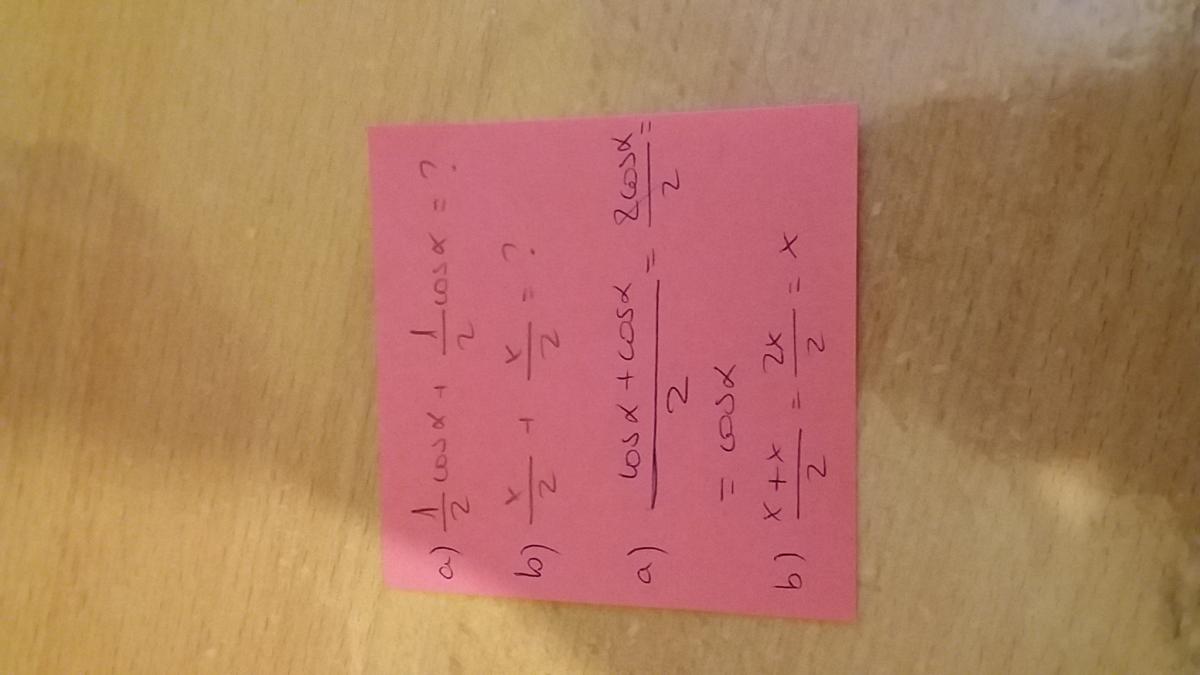 a) 1/2 cosα + 1/2 cosα = ?
b) x/2 + x/2 = ?
a) (cosα + cosα)/2 = 2cosα/2 =
= cosα
b) (x + x)/2 = 2x/2 = x